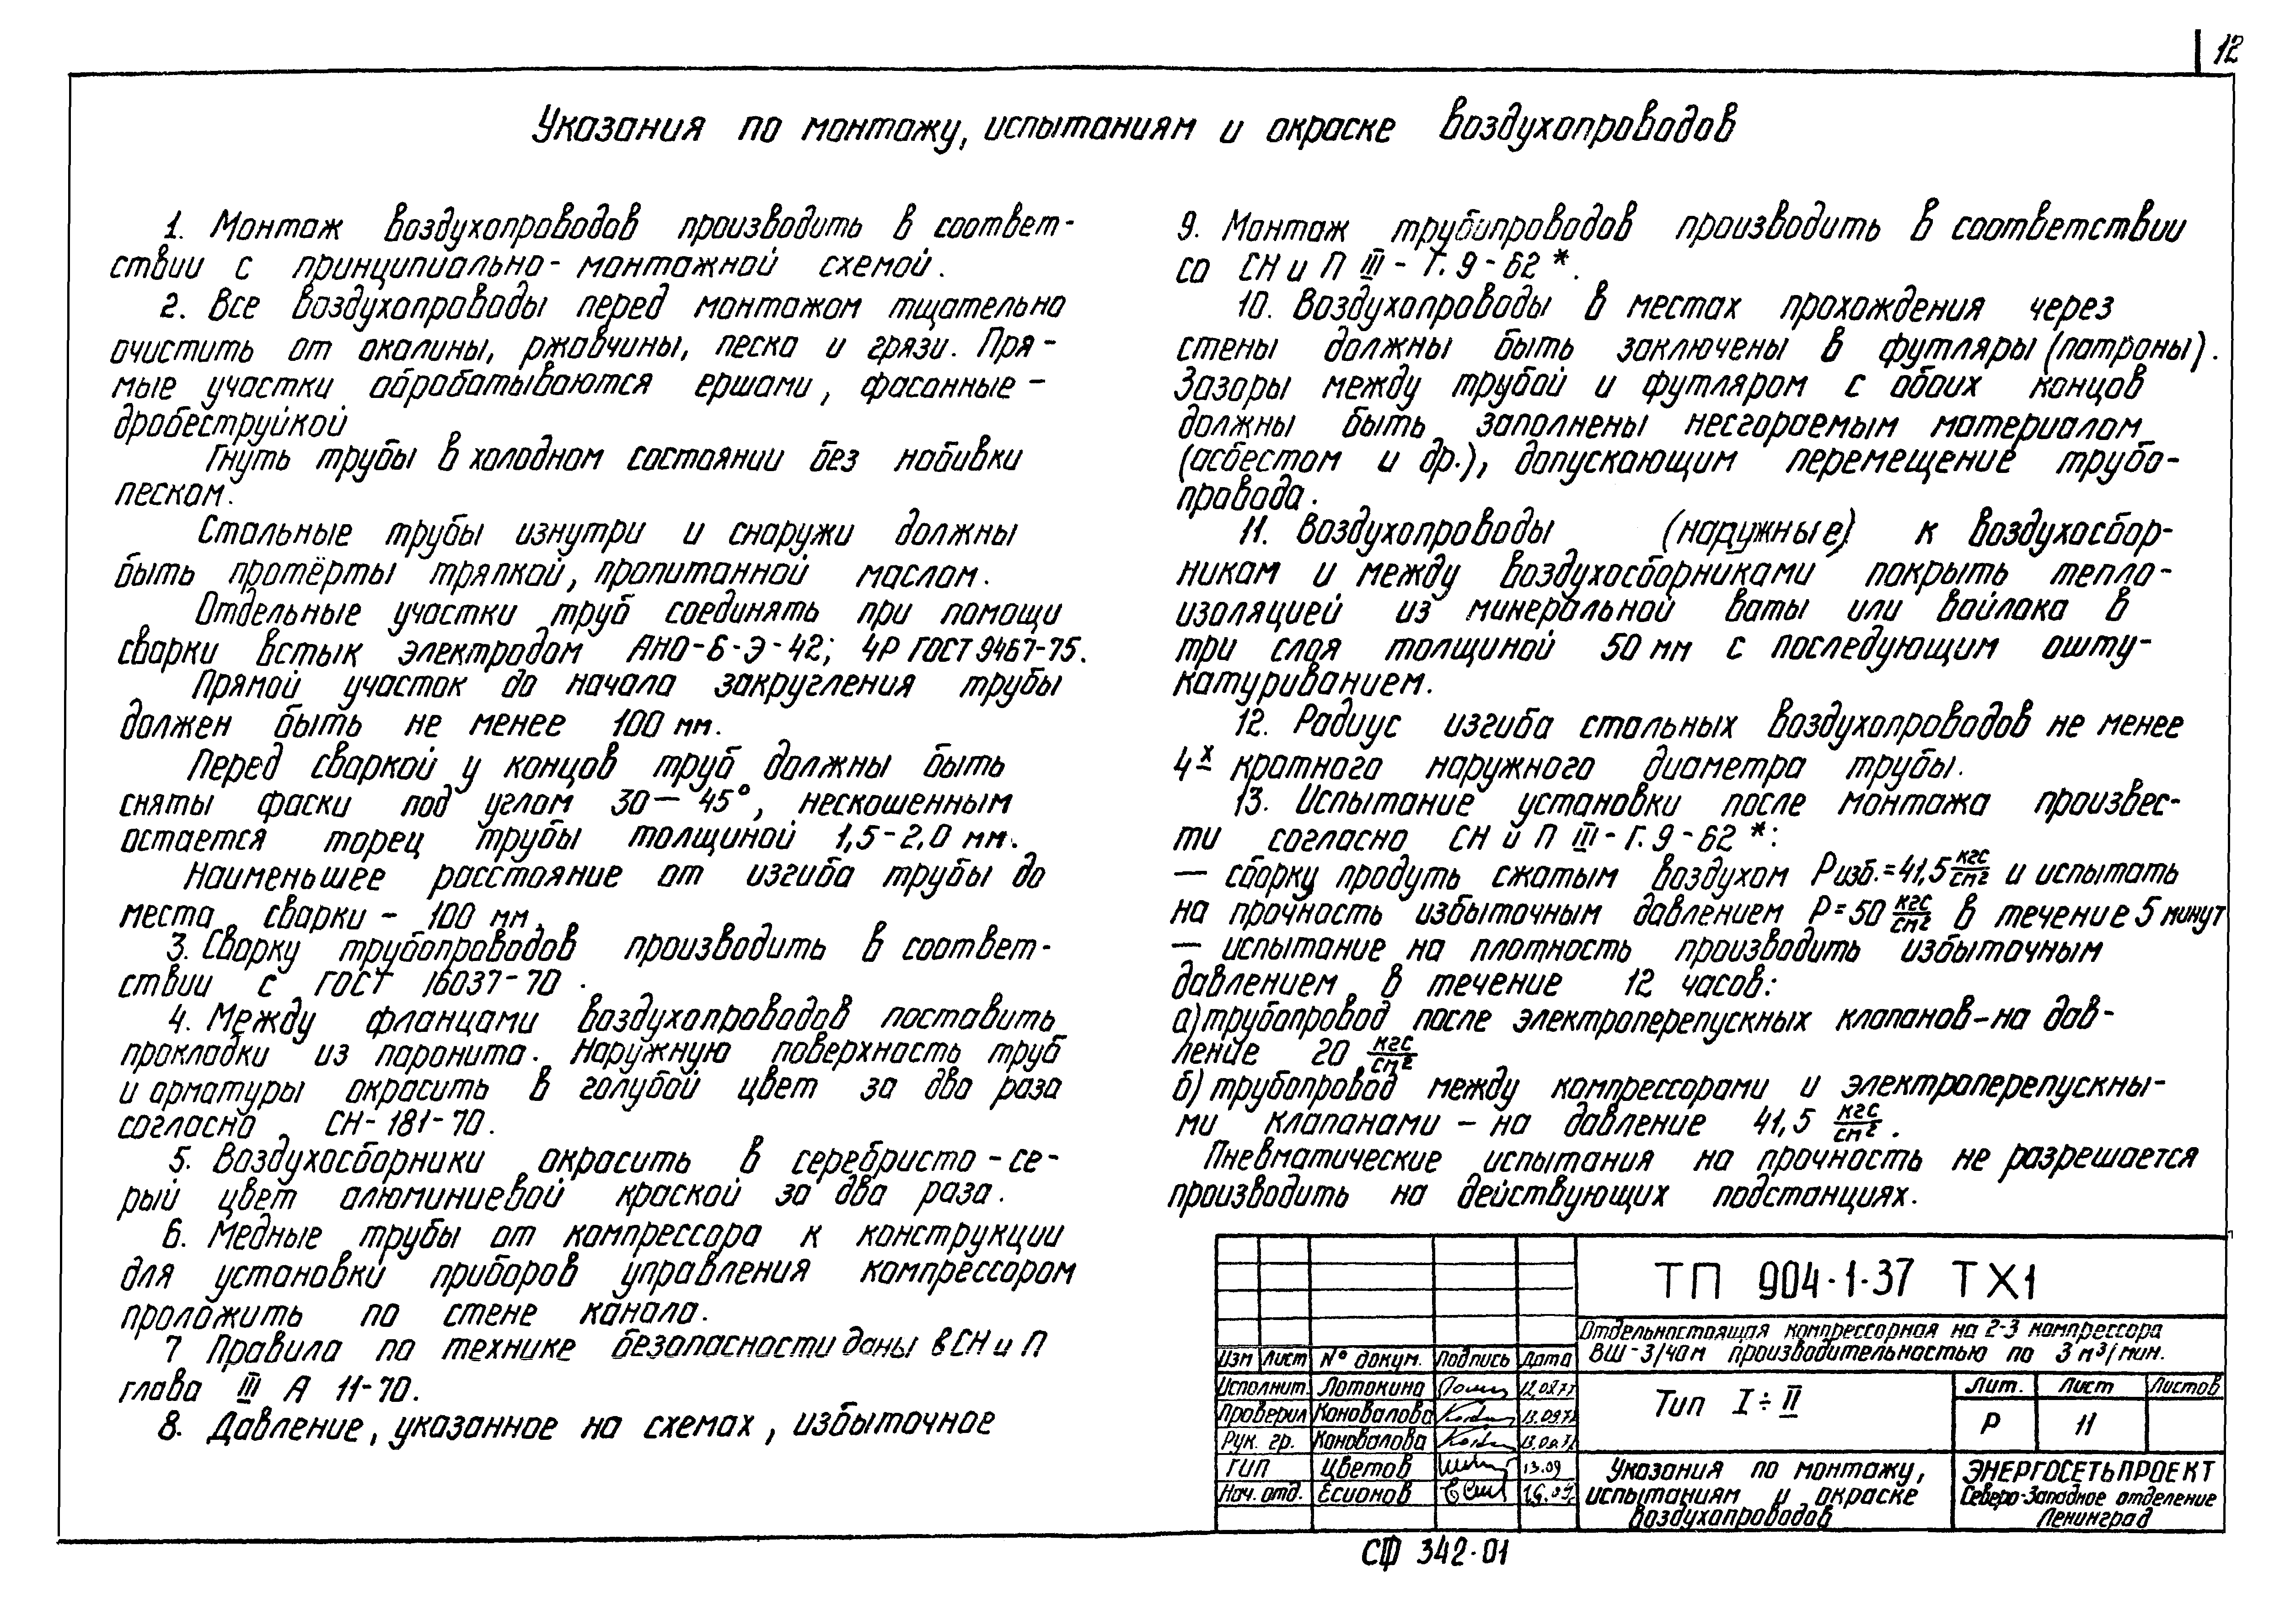 12
Указания по монтажу, испытаниям и окраске воздухопроводов
1. Монтаж воздухопроводов производить в соответ-
ствии с принципиально-монтажной схемой.
2. Все воздухопроводы перед монтажом тщательно
очистить от окалины, ржавчины, песка и грязи. Пря-
мые участки обрабатываются ершами, фасонные -
дробеструйкой
Гнуть трубы в холодном состоянии без набивки
песком.
Стальные трубы изнутри и снаружи должны
быть протёрты тряпкой, пропитанной маслом.
Отдельные участки труб соединять при помощи
сварки встык электродом АНО-6-Э-42; 4Р ГОСТ 9467-75.
Прямой участок до начала закругления трубы
должен быть не менее 100 мм.
Перед сваркой у концов труб должны быть
сняты фаски под углом 30—45°, нескошенным
остается торец трубы толщиной 1,5-2,0 мм.
Наименьшее расстояние от изгиба трубы до
места сварки - 100 мм.
3. Сварку трубопроводов производить в соответ-
ствии с ГОСТ 16037-70.
4. Между фланцами воздухопроводов поставить
прокладки из паронита. Наружную поверхность труб
и арматуры окрасить в голубой цвет за два раза
согласно СН-181-70.
5. Воздухосборники окрасить в серебристо-се-
рый цвет алюминиевой краской за два раза.
6. Медные трубы от компрессора к конструкции
для установки приборов управления компрессором
проложить по стене канала.
7 Правила по технике безопасности даны в СН и П
глава III А 11-70.
8. Давление, указанное на схемах, избыточное
9. Монтаж трубопроводов производить в соответствии
со СН и П III-Г.9-62*.
10. Воздухопроводы в местах прохождения через
стены должны быть заключены в футляры (патроны).
Зазоры между трубой и футляром с обоих концов
должны быть заполнены несгораемым материалом
(асбестом и др.), допускающим перемещение трубо-
провода.
11. Воздухопроводы (наружные) к воздухосбор-
никам и между воздухосборниками покрыть тепло-
изоляцией из минеральной ваты или войлока в
три слоя толщиной 50 мм с последующим ошту-
катуриванием.
12. Радиус изгиба стальных воздухопроводов не менее
4х кратного наружного диаметра трубы.
13. Испытание установки после монтажа произвес-
ти согласно СН и П III-Г.9-62*:
— сборку продуть сжатым воздухом Ризб.=41,5 кгс/см² и испытать
на прочность избыточным давлением Р=50 кгс/см² в течение 5 минут
— испытание на плотность производить избыточным
давлением в течение 12 часов:
а) трубопровод после электроперепускных клапанов-на дав-
ление 20 кгс/см²
б) трубопровод между компрессорами и электроперепускны-
ми клапанами - на давление 41,5 кгс/см².
Пневматические испытания на прочность не разрешается
производить на действующих подстанциях.
ТП 904-1-37 ТХ1
Отдельностоящая компрессорная на 2-3 компрессора
ВШ-3/40м производительностью по 3 м³/мин.
Изм Лист № докум. Подпись Дата
Исполнит. Лотокина
Проверил Коновалова
Рук. гр. Коновалова
ГИП Цветов 13.09
Нач. отд. Есионов
Тип I÷II
Лит. Лист Листов
Р 11
Указания по монтажу,
испытаниям и окраске
воздухопроводов
ЭНЕРГОСЕТЬПРОЕКТ
Северо-Западное отделение
Ленинград
СФ 342-01